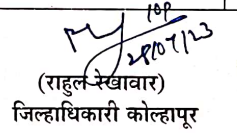 28/07/23
(राहुल रेखावार)
जिल्हाधिकारी कोल्हापूर